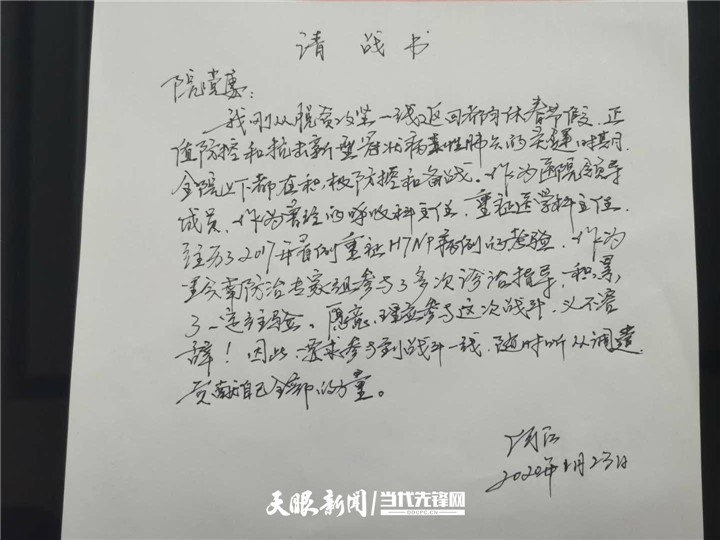 请战书
院党委：
我刚从脱贫攻坚一线返回都匀休春节假，正
值防控和抗击新型冠状病毒性肺炎的关键时期，
全院上下都在积极防控和备战。作为医院领导
成员，作为曾经的呼吸科主任，重症医学科主任，
经历了2017年首例重症H7N9病例的考验，作为
黔南防治专家组参与了多次诊治指导，积累
了一定经验。愿意、理应参与这次战斗，义不容
辞！因此，要求参与到战斗一线，随时听从调遣
贡献自己全部的力量。
2020年1月23日
天眼新闻 当代先锋网
DDCPC.CN